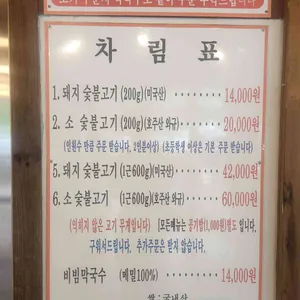 차 림 표
1. 돼지 숯불고기 (200g)(미국산) 14,000원
2. 소 숯불고기 (200g)(호주산 와규) 20,000원
(인원수 만큼 주문 받습니다, 2인분이상) (초등학생 이상은 기본 주문 받습니다)
5. 돼지 숯불고기 (1근600g)(미국산) 42,000원
6. 소 숯불고기 (1근600g)(호주산 와규) 60,000원
(익히지 않은 고기 무게입니다) [모든메뉴는 공기밥(1,000원)별도 입니다.
구워서드립니다. 추가주문은 받지 않습니다.
비빔막국수 (메밀100%) 14,000원
쌀 : 국내산